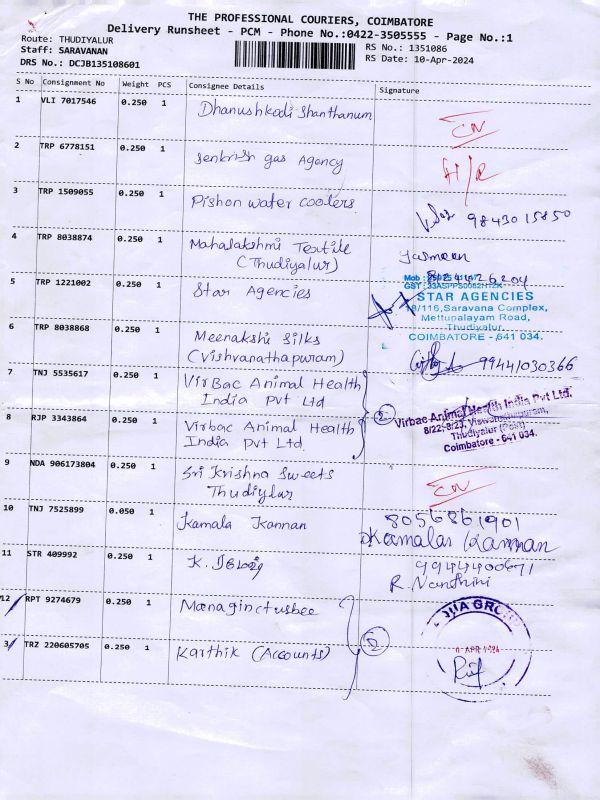 THE PROFESSIONAL COURIERS, COIMBATORE
Delivery Runsheet - PCM - Phone No.:0422-3505555 - Page No.:1
Route: THUDIYALUR
RS No.: 1351086
Staff: SARAVANAN
RS Date: 10-Apr-2024
DRS No.: DCJB135108601
S No Consignment No Weight PCS Consignee Details Signature
1 VLI 7017546 0.250 1 Dhanushkodi Shanthanum
2 TRP 6778151 0.250 1 Senkrish gas Agency
3 TRP 1509055 0.250 1 Pishon water coolers
9843015850
4 TRP 8038874 0.250 1 Mahalakshmi Textile Jasmeen
(Thudiyalur)
5 TRP 1221002 0.250 1 Star Agencies
STAR AGENCIES
8/116,Saravana Complex,
Mettupalayam Road,
Thudiyalur,
COIMBATORE - 641 034.
6 TRP 8038868 0.250 1 Meenakshi Silks
(Vishvanathapuram)
99441030366
7 TNJ 5535617 0.250 1 VirBac Animal Health
India Pvt Ltd
8 RJP 3343864 0.250 1 Virbac Animal Health
India Pvt Ltd.
2
Virbac Animal Health India Pvt Ltd.
8/22-8/23, Viswanathapuram,
Thudiyalur (Post)
Coimbatore - 641 034.
9 NDA 906173804 0.250 1 Sri Krishna Sweets
Thudiylur
10 TNJ 7525899 0.050 1 Kamala Kannan
8056861901
Kamala Kannan
11 STR 409992 0.250 1 K.
R. Nandhini
12 RPT 9274679 0.250 1
3 TRZ 220605705 0.250 1 Karthik (Accounts)
2
APR